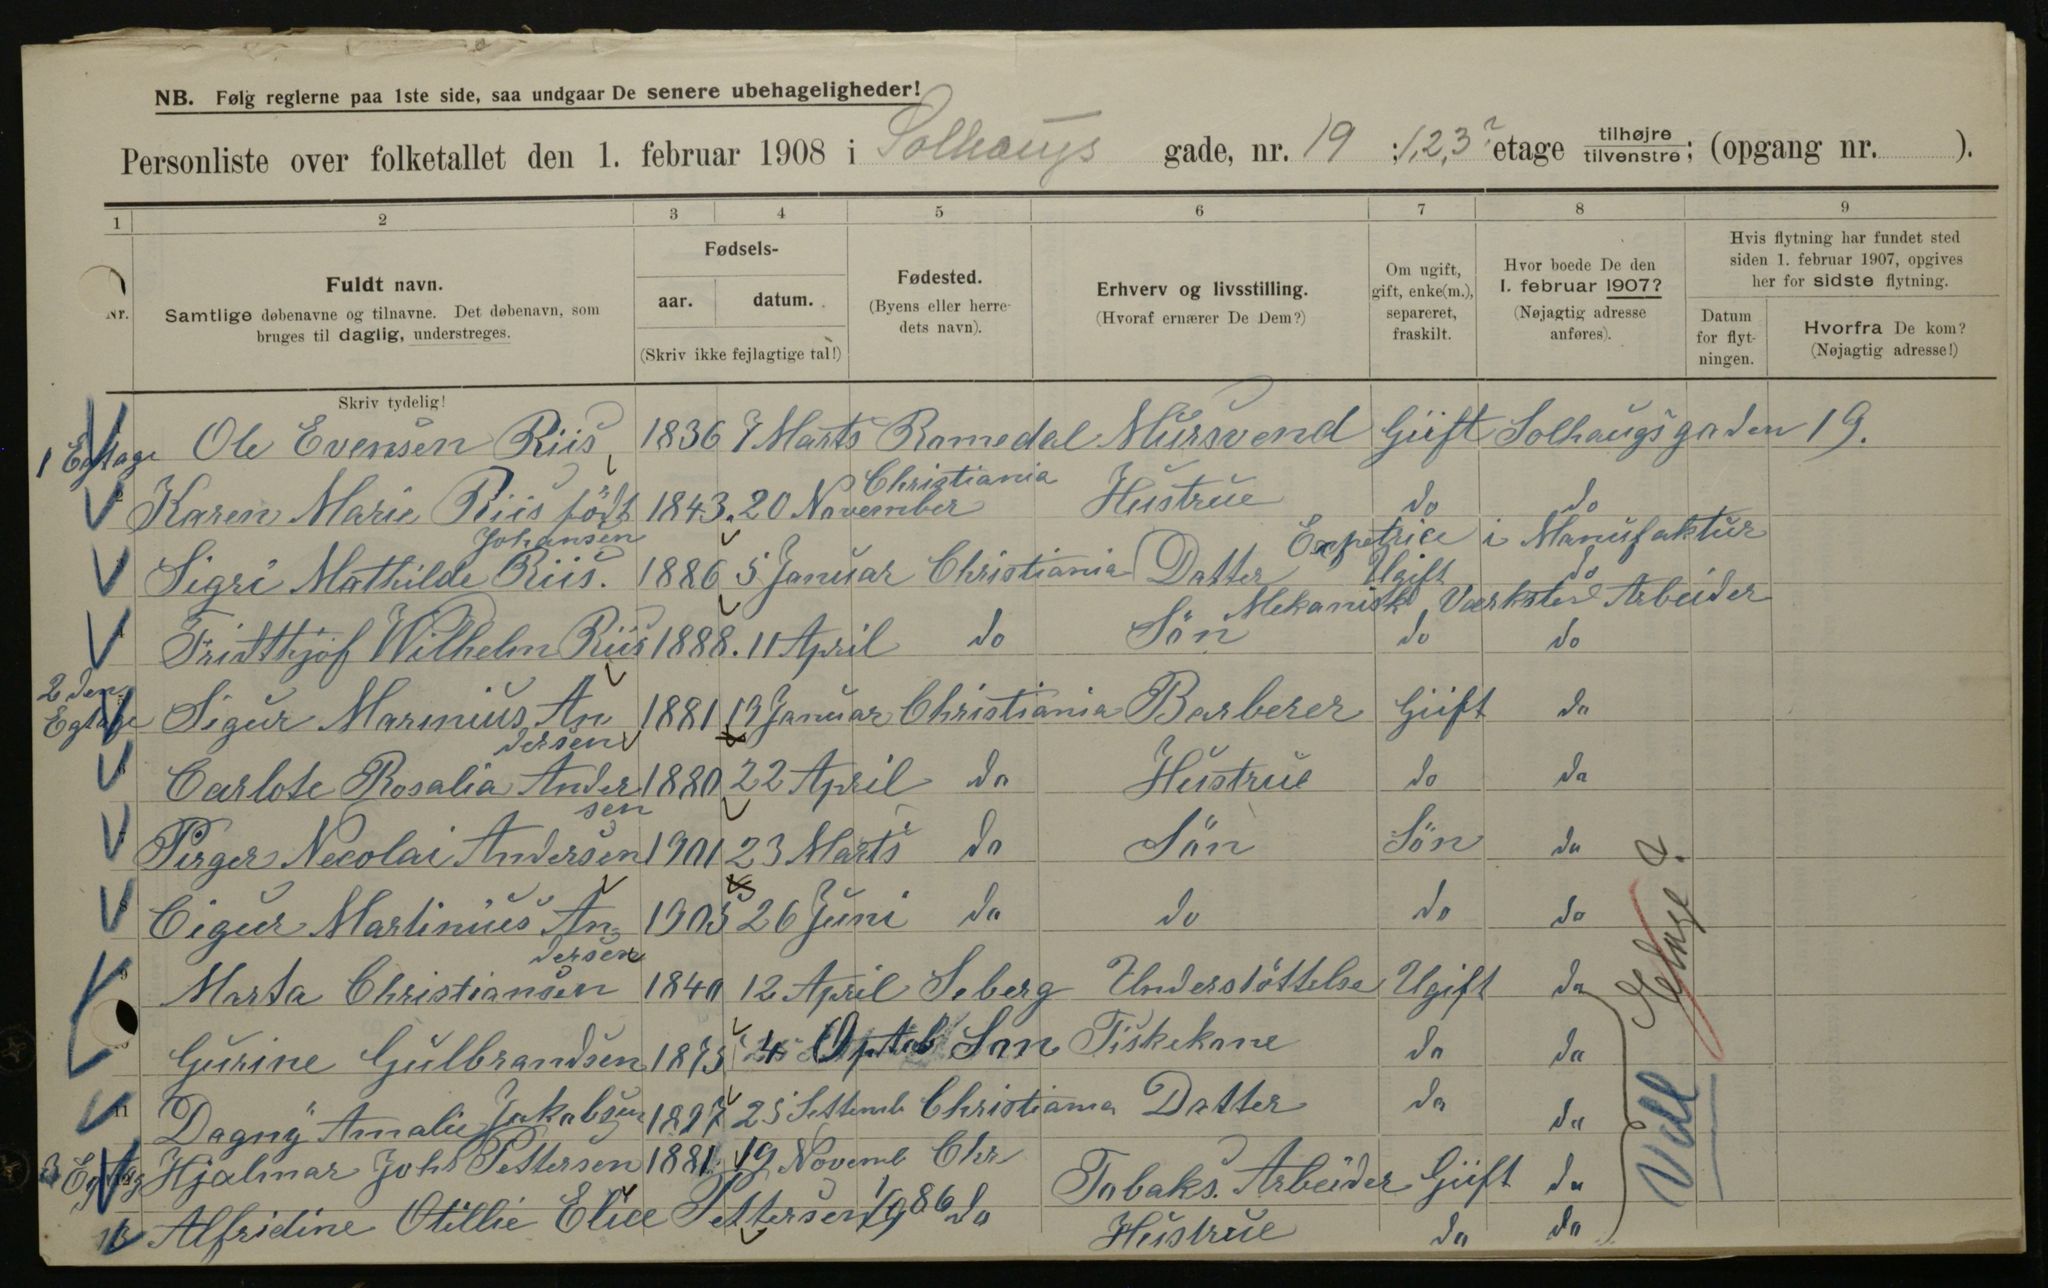 NB. Følg reglerne paa 1ste side, saa undgaar De senere ubehageligheder!
Personliste over folketallet den 1. februar 1908 i Solhaugs gade, nr. 19 : 1,2,3 etage tilhøjre/tilvenstre; (opgang nr. ).
1 2 3 4 5 6 7 8 9
Nr.
Fuldt navn.
Samtlige døbenavne og tilnavne. Det døbenavn, som
bruges til daglig, understreges.
Skriv tydelig!
Fødsels-
aar. datum.
(Skriv ikke fejlagtige tal!)
Fødested.
(Byens eller herre-
dets navn).
Erhverv og livsstilling.
(Hvoraf ernærer De Dem?)
Om ugift,
gift, enke(m.),
separeret,
fraskilt.
Hvor boede De den
1. februar 1907?
(Nøjagtig adresse
anføres).
Hvis flytning har fundet sted
siden 1. februar 1907, opgives
her for sidste flytning.
Datum
for flyt-
ningen.
Hvorfra De kom?
(Nøjagtig adresse!)
1 Egtage Ole Evensen Riis 1836 7 Marts Romedal Mursvend Giift Solhaugsgaden 19.
2 Karen Marie Riis født Johansen 1843. 20 November Christiania Hustrue do do
Sigri Mathilde Riis. 1886 5 Januar Christiania Datter Expetrice i Manufaktur Ugift do
4 Fridthjof Wilhelm Riis 1888. 11 April do Søn Mekanisk Værksted Arbeider do do
2den Egtage Sigur Marinius Andersen 1881 13 Januar Christiania Barberer Giift do
Carlote Rosalia Andersen 1880 22 April do Hustrue do do
Pirger Necolai Andersen 1901 23 Marts do Søn Søn do
Cigur Martinius Andersen 1905 26 Juni do do do do
9 Marta Christiansen 1840 12 April Seberg Understøttelse Ugift do
Gurine Gulbrandsen 1875 4 Son Fiskekone do do
11 Dagny Amalie Jakobsen 1897 25 Settemb Christiania Datter do do
3 Egtag Hjalmar Johs Pettersen 1881 19 Novemb Chr Tabaks. Arbeider Giift do
13 Alfridine Otillie Elice Pettersen 1/9 86 do Hustrue do do